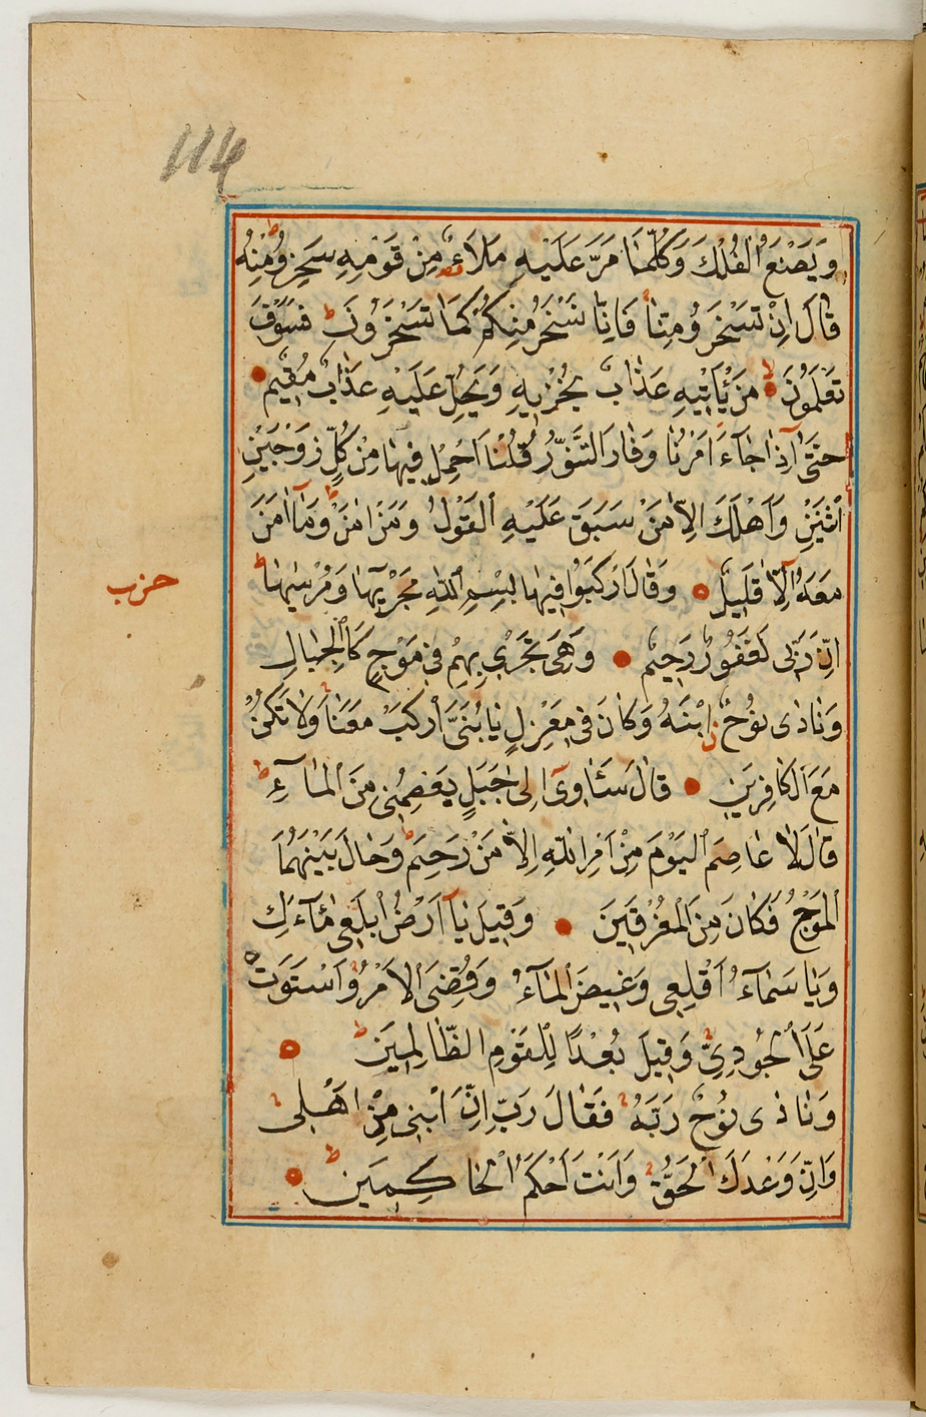 114
وَيَصْنَعُ الْفُلْكَ وَكُلَّمَا مَرَّ عَلَيْهِ مَلَاءٌ مِنْ قَوْمِهِ سَخِرُو مِنْهُ
قَالَ اِنْ تَسْخَرُو مِنَّا فَاِنَّا نَسْخَرُ مِنْكُمْ كَمَا تَسْخَرُونَ فَسَوْفَ
تَعْلَمُونَ مَنْ يَأْتِيهِ عَذَابٌ يُخْزِيهِ وَيَحِلُّ عَلَيْهِ عَذَابٌ مُقِيمٌ
حَتَّىٓ اِذَا جَآءَ اَمْرُنَا وَفَارَ التَّنُّورُ قُلْنَا احْمِلْ فِيهَا مِنْ كُلٍّ زَوْجَيْنِ
اثْنَيْنِ وَاَهْلَكَ اِلَّا مَنْ سَبَقَ عَلَيْهِ الْقَوْلُ وَمَنْ اٰمَنَ وَمَآ اٰمَنَ
مَعَهُٓ اِلَّا قَلِيلٌ وَقَالَ ارْكَبُوا فِيهَا بِسْمِ اللّٰهِ مَجْرٰيهَا وَمُرْسٰيهَا
حزب
اِنَّ رَبِّى لَغَفُورٌ رَحِيمٌ وَهِىَ تَجْرِى بِهِمْ فِى مَوْجٍ كَالْجِبَالِ
وَنَادٰى نُوحٌ ابْنَهُ وَكَانَ فِى مَعْزِلٍ يَا بُنَىَّ ارْكَبْ مَعَنَا وَلَا تَكُنْ
مَعَ الْكَافِرِينَ قَالَ سَـَٔاوِىٓ اِلٰى جَبَلٍ يَعْصِمُنِى مِنَ الْمَآءِ
قَالَ لَا عَاصِمَ الْيَوْمَ مِنْ اَمْرِ اللّٰهِ اِلَّا مَنْ رَحِمَ وَحَالَ بَيْنَهُمَا
الْمَوْجُ فَكَانَ مِنَ الْمُغْرَقِينَ وَقِيلَ يَآ اَرْضُ ابْلَعِى مَآءَكِ
وَيَا سَمَآءُ اَقْلِعِى وَغِيضَ الْمَآءُ وَقُضِىَ الْاَمْرُ وَاسْتَوَتْ
عَلَى الْجُودِىِّ وَقِيلَ بُعْدًا لِلْقَوْمِ الظَّالِمِينَ
وَنَادٰى نُوحٌ رَبَّهُ فَقَالَ رَبِّ اِنَّ ابْنِى مِنْ اَهْلِى
وَاِنَّ وَعْدَكَ الْحَقُّ وَاَنْتَ اَحْكَمُ الْحَاكِمِينَ